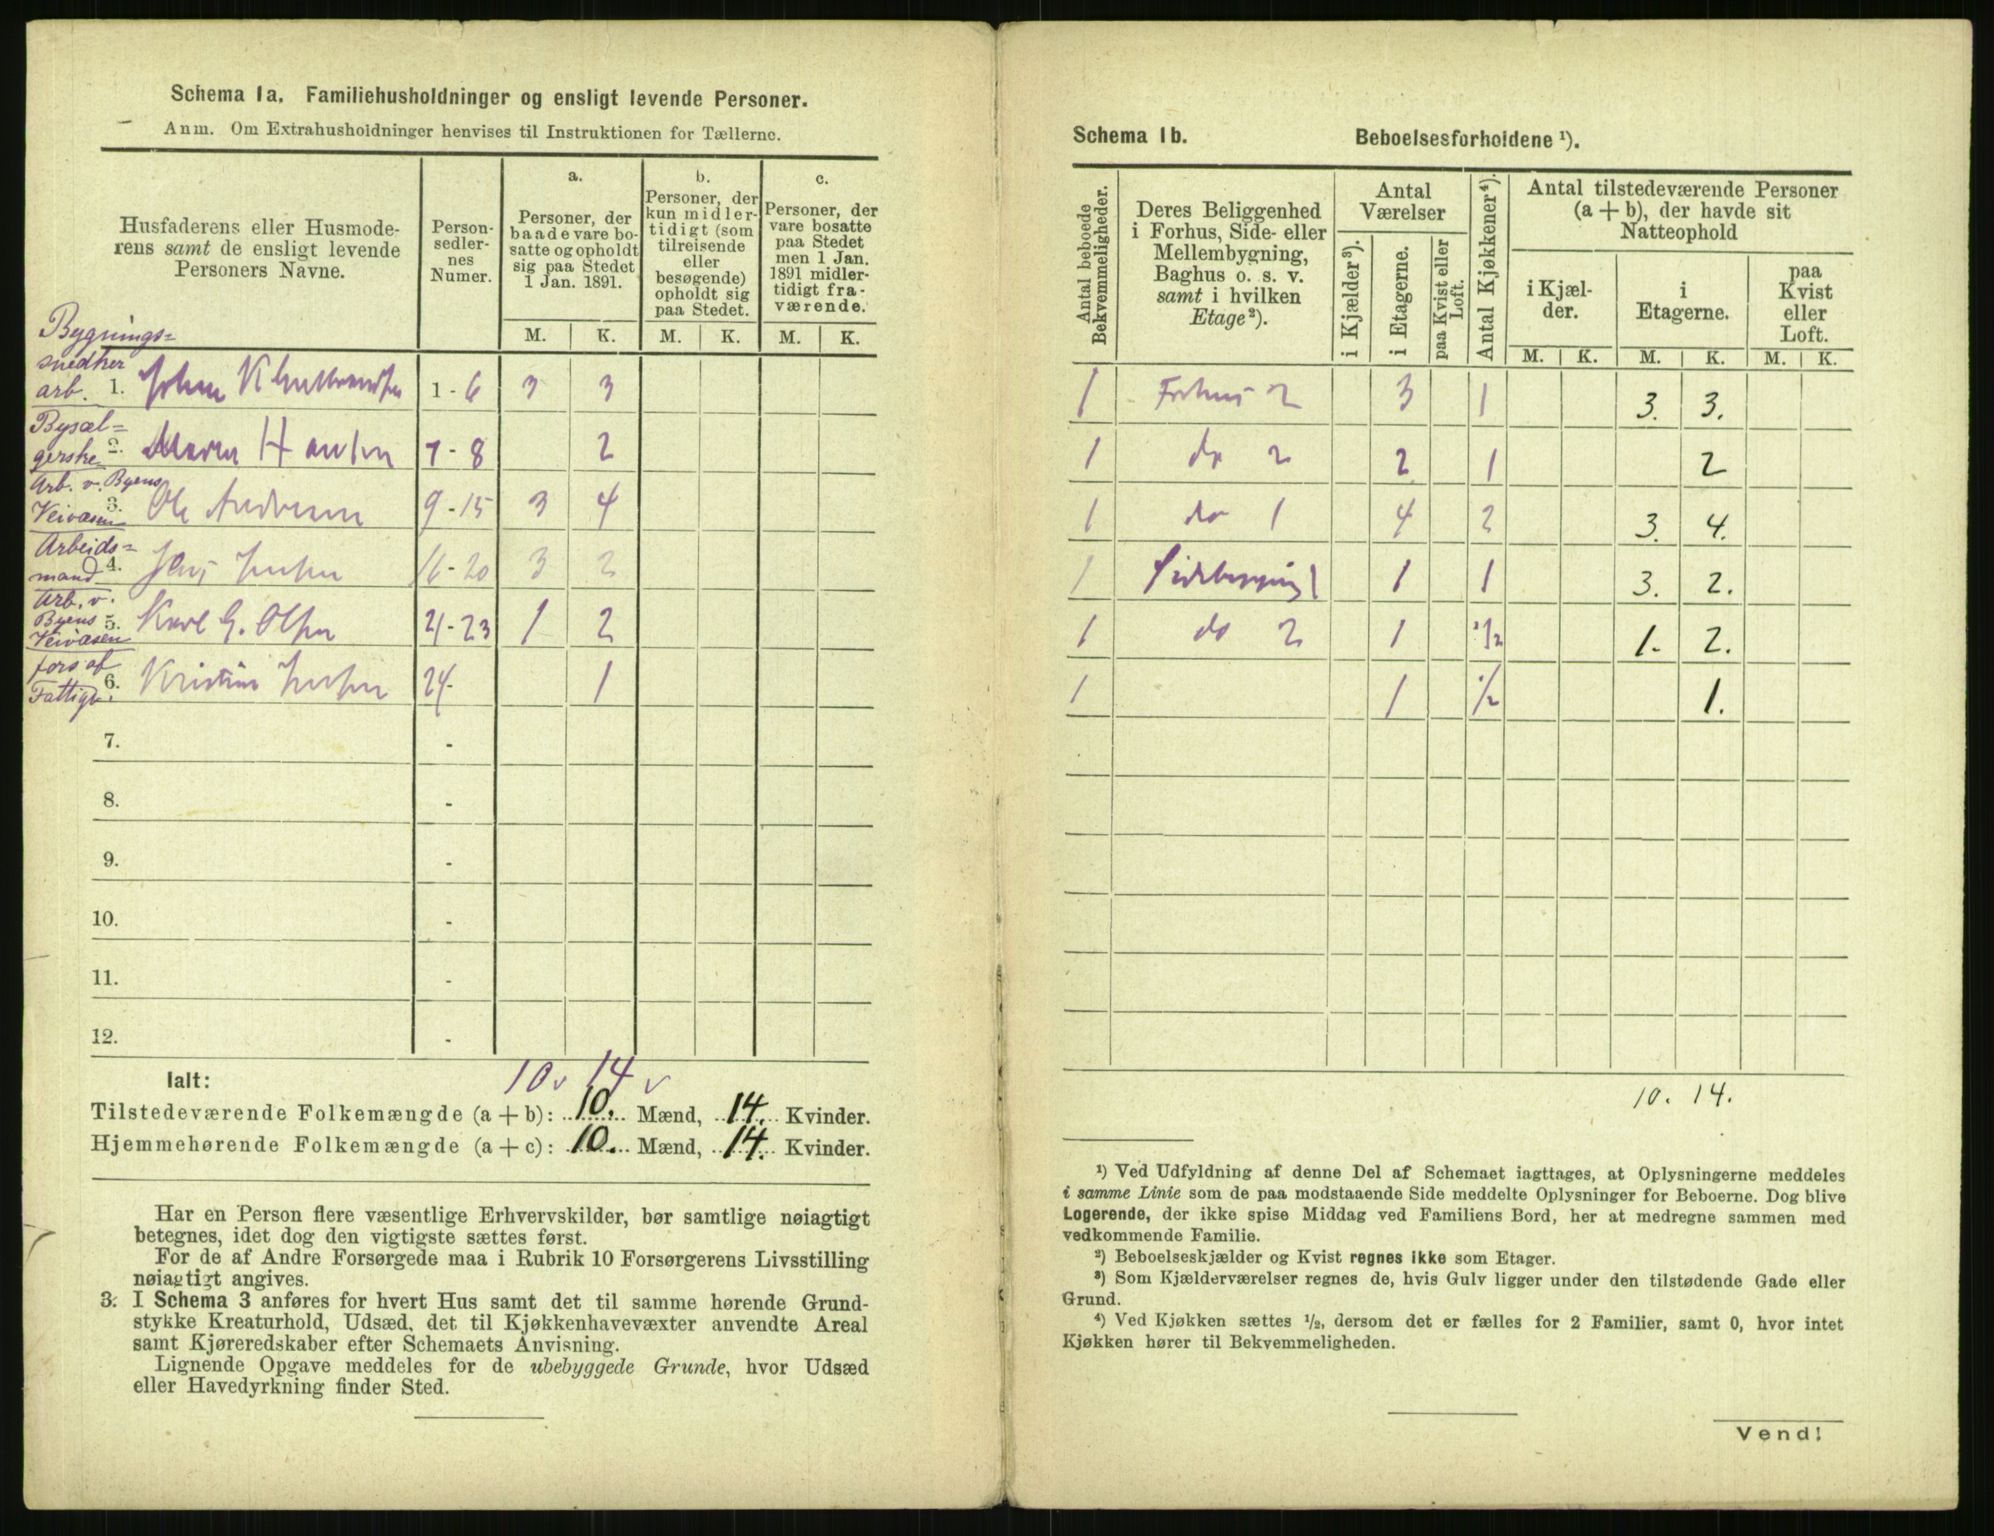 Schema 1a. Familiehusholdninger og ensligt levende Personer.
Anm. Om Extrahusholdninger henvises til Instruktionen for Tællerne.
Husfaderens eller Husmode-
rens samt de ensligt levende
Personers Navne.
Person-
sedler-
nes
Numer.
a.
Personer, der
baade vare bo-
satte og opholdt
sig paa Stedet
1 Jan. 1891.
b.
Personer, der
kun midler-
tidigt (som
tilreisende
eller
besøgende)
opholdt sig
paa Stedet.
c.
Personer, der
vare bosatte
paa Stedet
men 1 Jan.
1891 midler-
tidigt fra-
værende.
M. K. M. K. M. K.
Bygnings=
snedker
arb. 1. Johan 1 - 6 3 3
Bysæl=
gerske 2. Maren Hansen 7 - 8 2
Arb. v. Byens
Veivæsen 3. Ole Andresen 9 - 15 3 4
Arbeids=
mand 4. Jens Jensen 16 - 20 3 2
Arb. v.
Byens 5. Karl G. Olsen 21 - 23 1 2
Veivæsen
fors af
Fattigv. 6. Kristine Jensen 24 - 1
7. -
8. -
9. -
10. -
11. -
12. -
10 v 14 v
Ialt:
Tilstedeværende Folkemængde (a + b): 10. Mænd, 14. Kvinder.
Hjemmehørende Folkemængde (a + c): 10. Mænd, 14. Kvinder.
Har en Person flere væsentlige Erhvervskilder, bør samtlige nøiagtigt
betegnes, idet dog den vigtigste sættes først.
For de af Andre Forsørgede maa i Rubrik 10 Forsørgerens Livsstilling
nøiagtigt angives.
3. I Schema 3 anføres for hvert Hus samt det til samme hørende Grund-
stykke Kreaturhold, Udsæd, det til Kjøkkenhavevæxter anvendte Areal
samt Kjøreredskaber efter Schemaets Anvisning.
Lignende Opgave meddeles for de ubebyggede Grunde, hvor Udsæd
eller Havedyrkning finder Sted.
Schema 1b. Beboelsesforholdene ¹).
Antal beboede
Bekvemmeligheder.
Deres Beliggenhed
i Forhus, Side- eller
Mellembygning,
Baghus o. s. v.
samt i hvilken
Etage²).
Antal
Værelser
i Kjælder³).
i Etagerne.
paa Kvist eller
Loft.
Antal Kjøkkener⁴).
Antal tilstedeværende Personer
(a + b), der havde sit
Natteophold
i Kjæl-
der.
i
Etagerne.
paa
Kvist
eller
Loft.
M. K. M. K. M. K.
1 Forhus 2 3 1 3. 3.
1 do 2 2 1 2
1 do 1 4 2 3. 4.
1 Sidebygning 1 1 1 3. 2.
1 do 2 1 1/2 1. 2.
1 1 1/2 1.
10. 14.
¹) Ved Udfyldning af denne Del af Schemaet iagttages, at Oplysningerne meddeles
i samme Linie som de paa modstaaende Side meddelte Oplysninger for Beboerne. Dog blive
Logerende, der ikke spise Middag ved Familiens Bord, her at medregne sammen med
vedkommende Familie.
²) Beboelseskjælder og Kvist regnes ikke som Etager.
³) Som Kjælderværelser regnes de, hvis Gulv ligger under den tilstødende Gade eller
Grund.
⁴) Ved Kjøkken sættes ½, dersom det er fælles for 2 Familier, samt 0, hvor intet
Kjøkken hører til Bekvemmeligheden.
Vend!